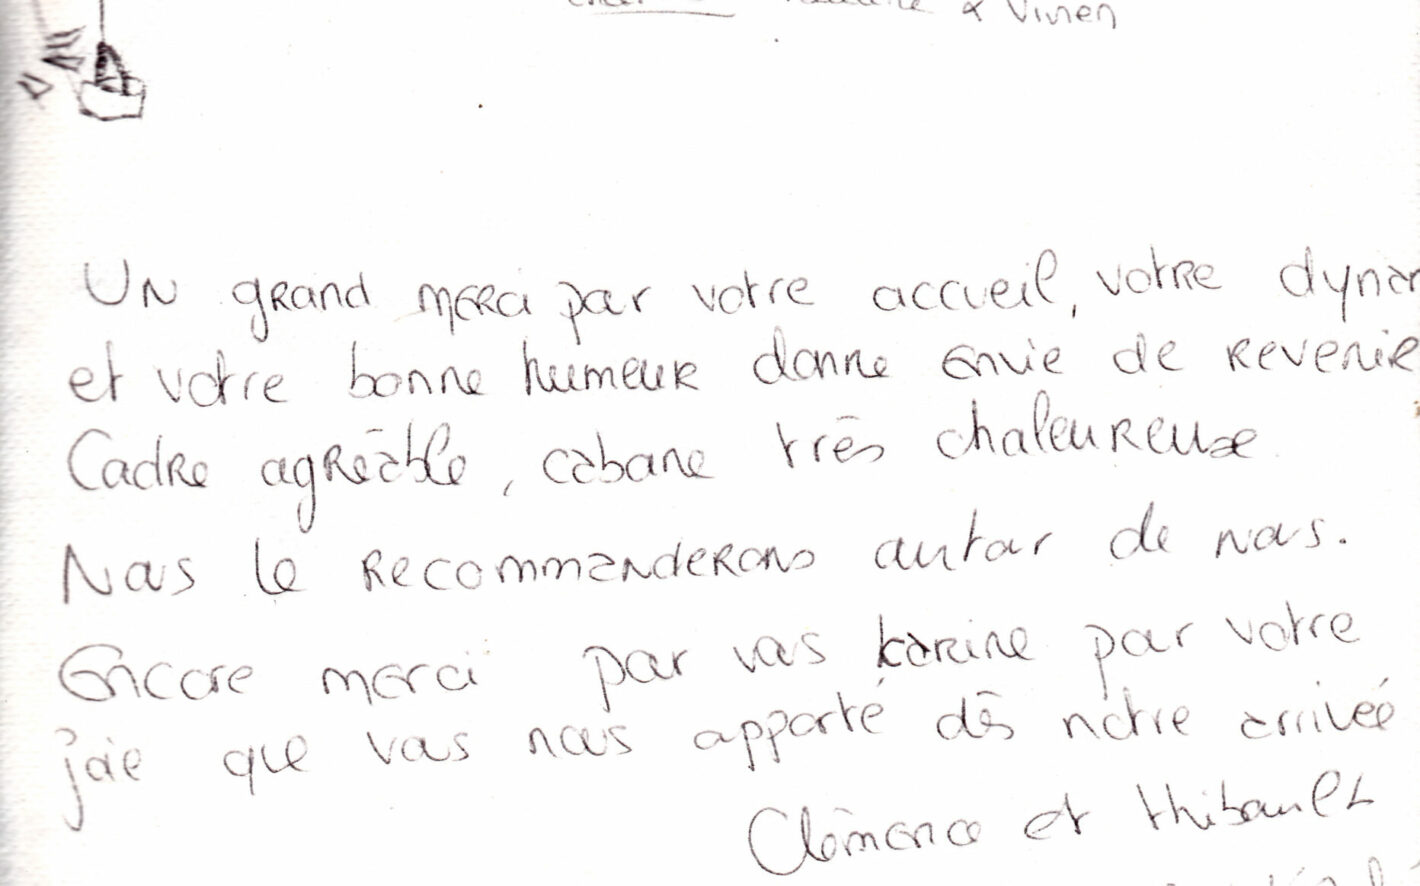 & Vivien
Un grand merci pour votre accueil, votre dynam
et votre bonne humeur donne envie de revenir
Cadre agréable, cabane très chaleureuse
Nous le recommanderons autour de nous.
Encore merci pour vous karine pour votre
joie que vous nous apporté dès notre arrivée
Clémence et thibault